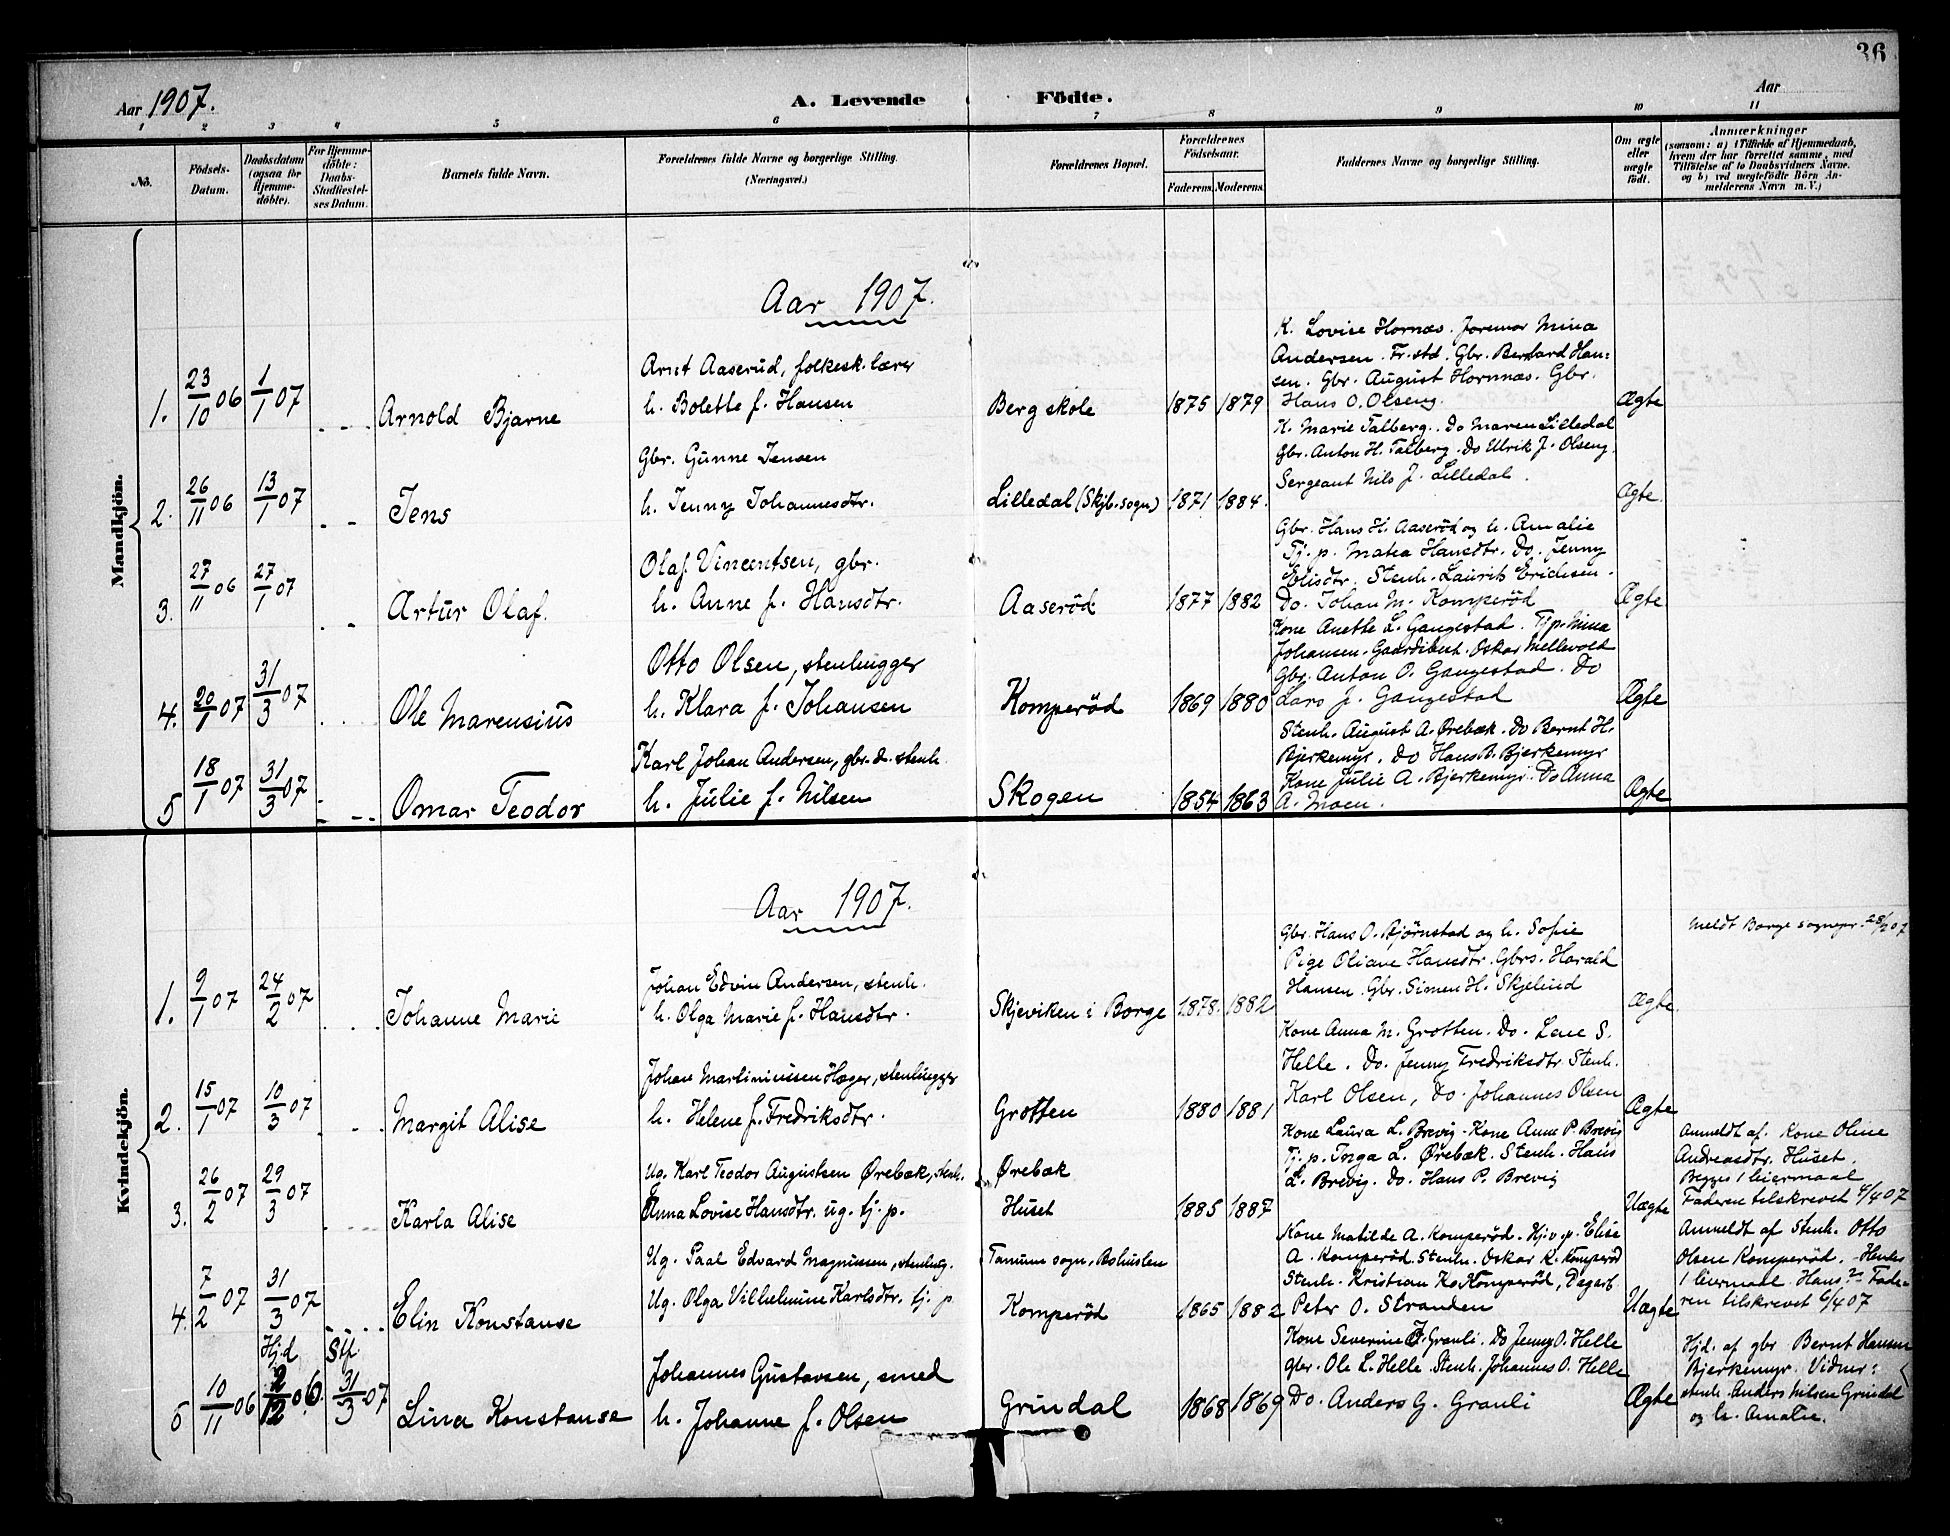 36
Aar 1907.
A. Levende Födte.
Aar
1 2 3 4 5 6 7 8 9 10 11
No.
Födsels-Datum.
Daabsdatum (ogsaa for Hjemmedöbte).
For Hjemmedöbte: Daabs-Stadfæstelses Datum.
Barnets fulde Navn.
Forældrenes fulde Navne og borgerlige Stilling.
(Næringsvei.)
Forældrenes Bopæl.
Forældrenes Födselsaar.
Faderens. Moderens.
Faddernes Navne og borgerlige Stilling.
Om ægte eller uægte födt.
Anmærkninger
(saasom: a) i Tilfælde af Hjemmedaab, hvem der har forrettet samme, med Tilföielse af to Daabsvidners Navne. og b) ved uægtefödte Börn Anmelderens Navn m. V.)
Mandkjön.
Aar 1907.
1. 23/10 06 1/1 07 Arnold Bjarne
Arnt Aaserud, folkesk. lærer
h. Bolette f. Hansen
Berg skole 1875 1879
K. Lovise Hornæs. Jormor Mina
Andersen. Fr. std. Gbr. Bernard Han=
sen. Gbr. August Hornnæs. Gbr.
Hans O. Olseng.
Ægte
2. 26/11 06 13/1 07 Jens
Gbr. Gunne Jensen
h. Jenny Johannesdtr.
Lilledal (Skjb. sogn) 1871 1884.
K. Marie Talberg. Do Maren Lilledal
Gbr. Anton H. Talberg. Do Ulrik J. Olseng.
Sergeant Nils J. Lilledal.
Ægte.
3. 27/11 06 27/1 07 Artur Olaf.
Olaf Vincentsen, gbr.
h. Anne f. Hansdtr.
Aaserød 1877 1882
Gbr. Hans H. Aaserød og h. Amalie
Tj. p. Matea Hansdtr. Do. Jenny
Elisdtr. Stenh. Laurits Erichsen.
Do. Johan M. Komperød
Ægte
4. 20/1 07 31/3 07 Ole Marensius
Otto Olsen, stenhugger
h. Klara f. Johansen
Komperød 1869 1880
Kone Anette L. Gangestad. Tj p. Mina
Johansen. Gaardibent. Oskar Mellevold
Gbr. Anton O. Gangestad. Do
Lars J. Gangestad
Ægte
5 18/1 07 31/3 07 Omar Teodor
Karl Johan Andersen, gbr. d. stenh.
h. Julie f. Nilsen
Skogen 1854 1863
Stenh. August A. Ørebæk. Do Bernt H.
Bjerkemyr. Do Hans B. Bjerkemyr
Kone Julie A. Bjerkemyr. Do Anna
A. Moen.
Ægte
Kvindekjön.
Aar 1907.
1. 9/1 07 24/2 07 Johanne Marie
Johan Edvin Andersen, stenh.
h. Olga Marie f. Hansdtr.
Skjeviken i Borge 1878. 1882
Gbr. Hans O. Bjørnstad og h. Sofie
Pige Oliane Hansdtr. Gbrs. Harald
Hansen. Gbr. Simen H. Skjelind
Ægte.
Meldt Borge sognepr. 28/2 07
2. 15/1 07 10/3 07 Margit Alise
Johan Martiniussen Hæger, stenhugger
h. Helene f. Fredriksdtr.
Grotten 1880 1881
Kone Anna M. Grotten. Do. Lene S.
Helle. Do. Jenny Fredriksdtr. Stenh.
Karl Olsen, Do. Johannes Olsen
Ægte
3. 26/2 07 29/3 07 Karla Alise
Ug. Karl Teodor Augustsen Ørebæk, stenh.
Anna Lovise Hansdtr. ug. tj. p.
Ørebæk
Huset 1885 1887
Kone Laura L. Brevig. Kone Anne P. Brevig
Tj. p. Inga L. Ørebæk. Stenh. Hans
L. Brevig. Do. Hans P. Brevig
Uægte
Anmeldt af. Kone Oline
Andreasdtr. Huset.
Begges 1 leiermaal
Faderen tilskrevet 4/4 07
4. 7/2 07 31/3 07 Elin Konstanse
Ug. Paal Edvard Magnussen, stenhug.
Ug. Olga Vilhelmine Karlsdtr. tj. p
Tanum sogn, Bohuslen
Komperød 1865 1882
Kone Matilde A. Komperød. Hjv. p. Elise
A. Komperød. Stenh. Oskar K. Komperød
Stenh. Kristian K. Komperød, Dagarb.
Peter O. Stranden
Uægte
Anmeldt af Stenh. Otto
Olsen Komperød. Hendes
1 leiermaal Hans 2. Fade=
ren tilskrevet 6/4 07
5 10/11 06 Hjd 2/12 06 Stf. 31/3 07 Lina Konstanse
Johannes Gustavsen, smed
h. Johanne f. Olsen
Grindal 1868 1869
Kone Severine J. Granli. Do Jenny O. Helle
gbr. Ole L. Helle. Stenh. Johannes O. Helle
Do. Anders G. Granli
Ægte
Hjd. af gbr Bernt Hansen
Bjerkemyr. Vidner:
stenh. Anders Nilsen Grindal
og h. Amalie.